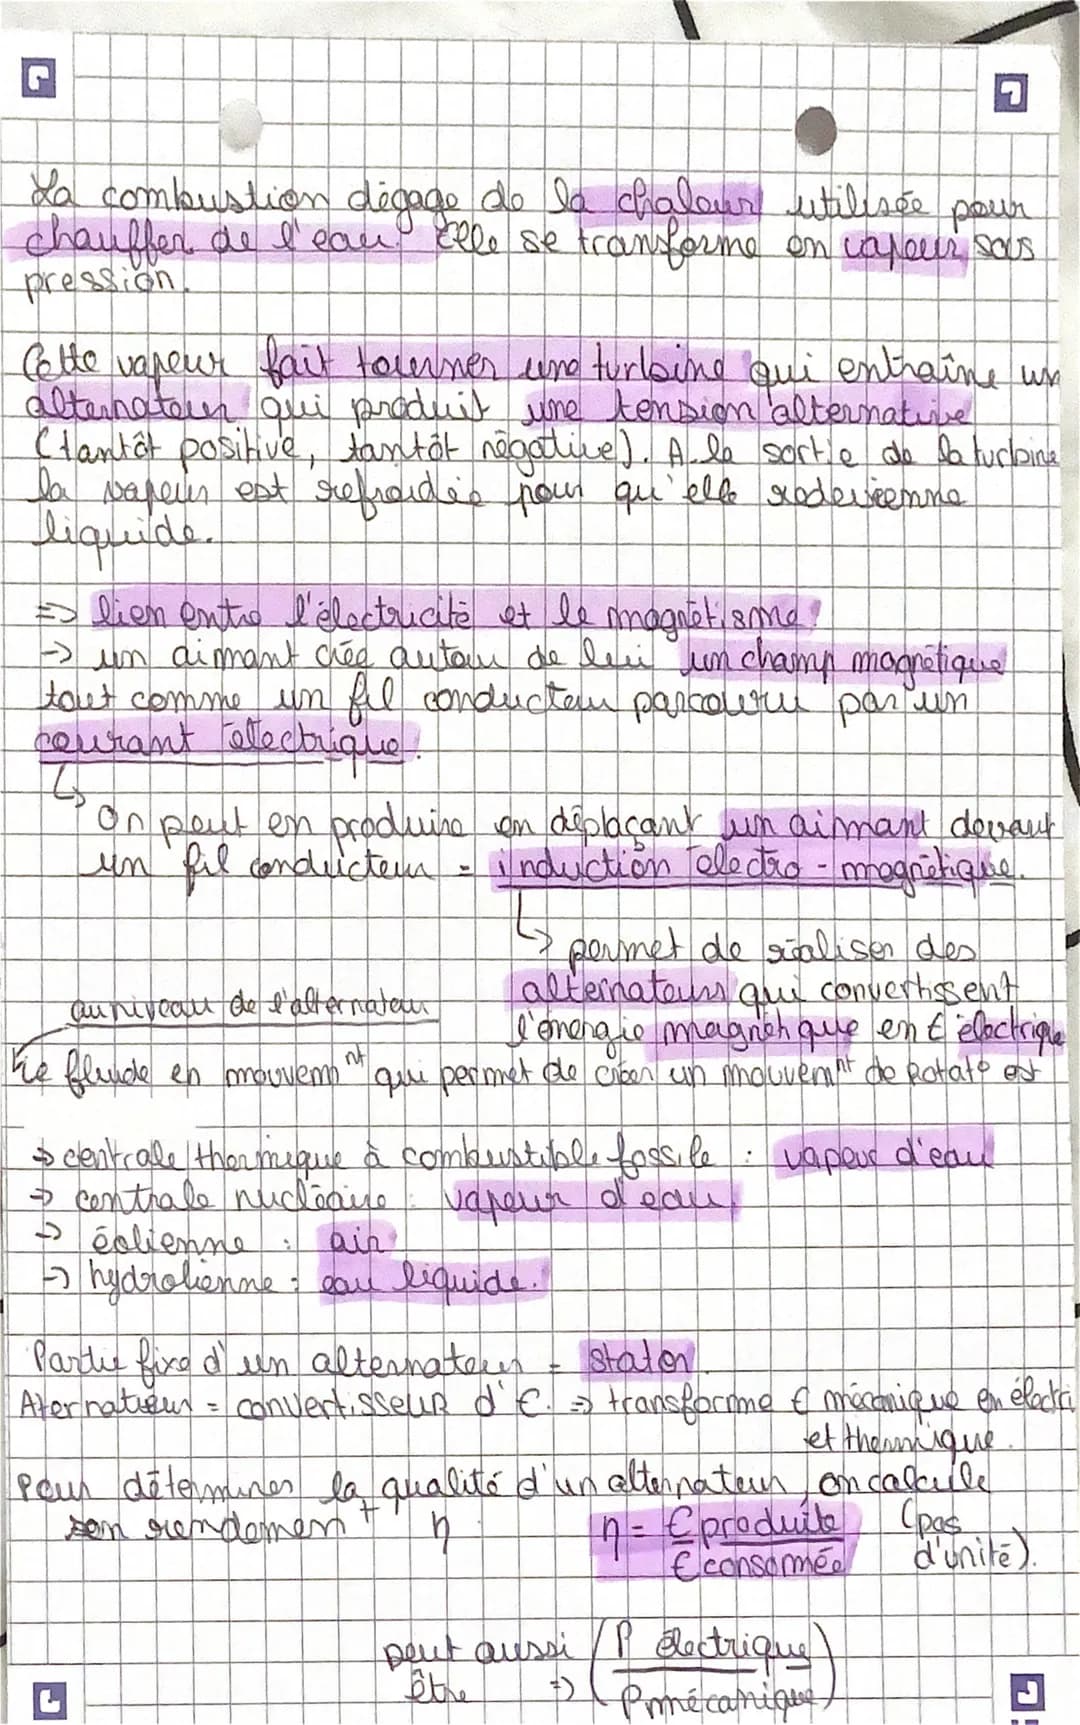 La combustion dégage de la chaleur utilisée pour
chauffer de l'eau. Elle se transforme en vapeur sous
pression.
Cette vapeur fait tourner une turbine qui entraîne un
alternateur qui produit une tension alternative
(tantôt positive, tantôt négative). A la sortie de la turbine
la vapeur est refroidie pour qu'elle redevienne
liquide.
=> lien entre l'électricité et le magnétisme
-> un aimant crée autour de lui un champ magnétique
tout comme un fil conducteur parcouru par un
courant électrique.
↳ On peut en produire en déplaçant un aimant devant
un fil conducteur = induction électro-magnétique.
↳ permet de réaliser des
alternateurs qui convertissent
l'énergie magnétique en € électrique
au niveau de l'alternateur
Le fluide en mouvem^nt qui permet de créer un mouvem^nt de rotat° est
-> centrale thermique à combustible fossile : vapeur d'eau
-> centrale nucléaire : vapeur d'eau
-> éolienne : air
-> hydrolienne : eau liquide.
Partie fixe d'un alternateur = stator
Aternateur = convertisseur d'€. => transforme € mécanique en électri
et thermique.
Pour déterminer la qualité d'un alternateur, on calcule
son rendement η η = €produite / €consomée (pas
d'unité).
peut aussi être => (P électrique / P mécanique)